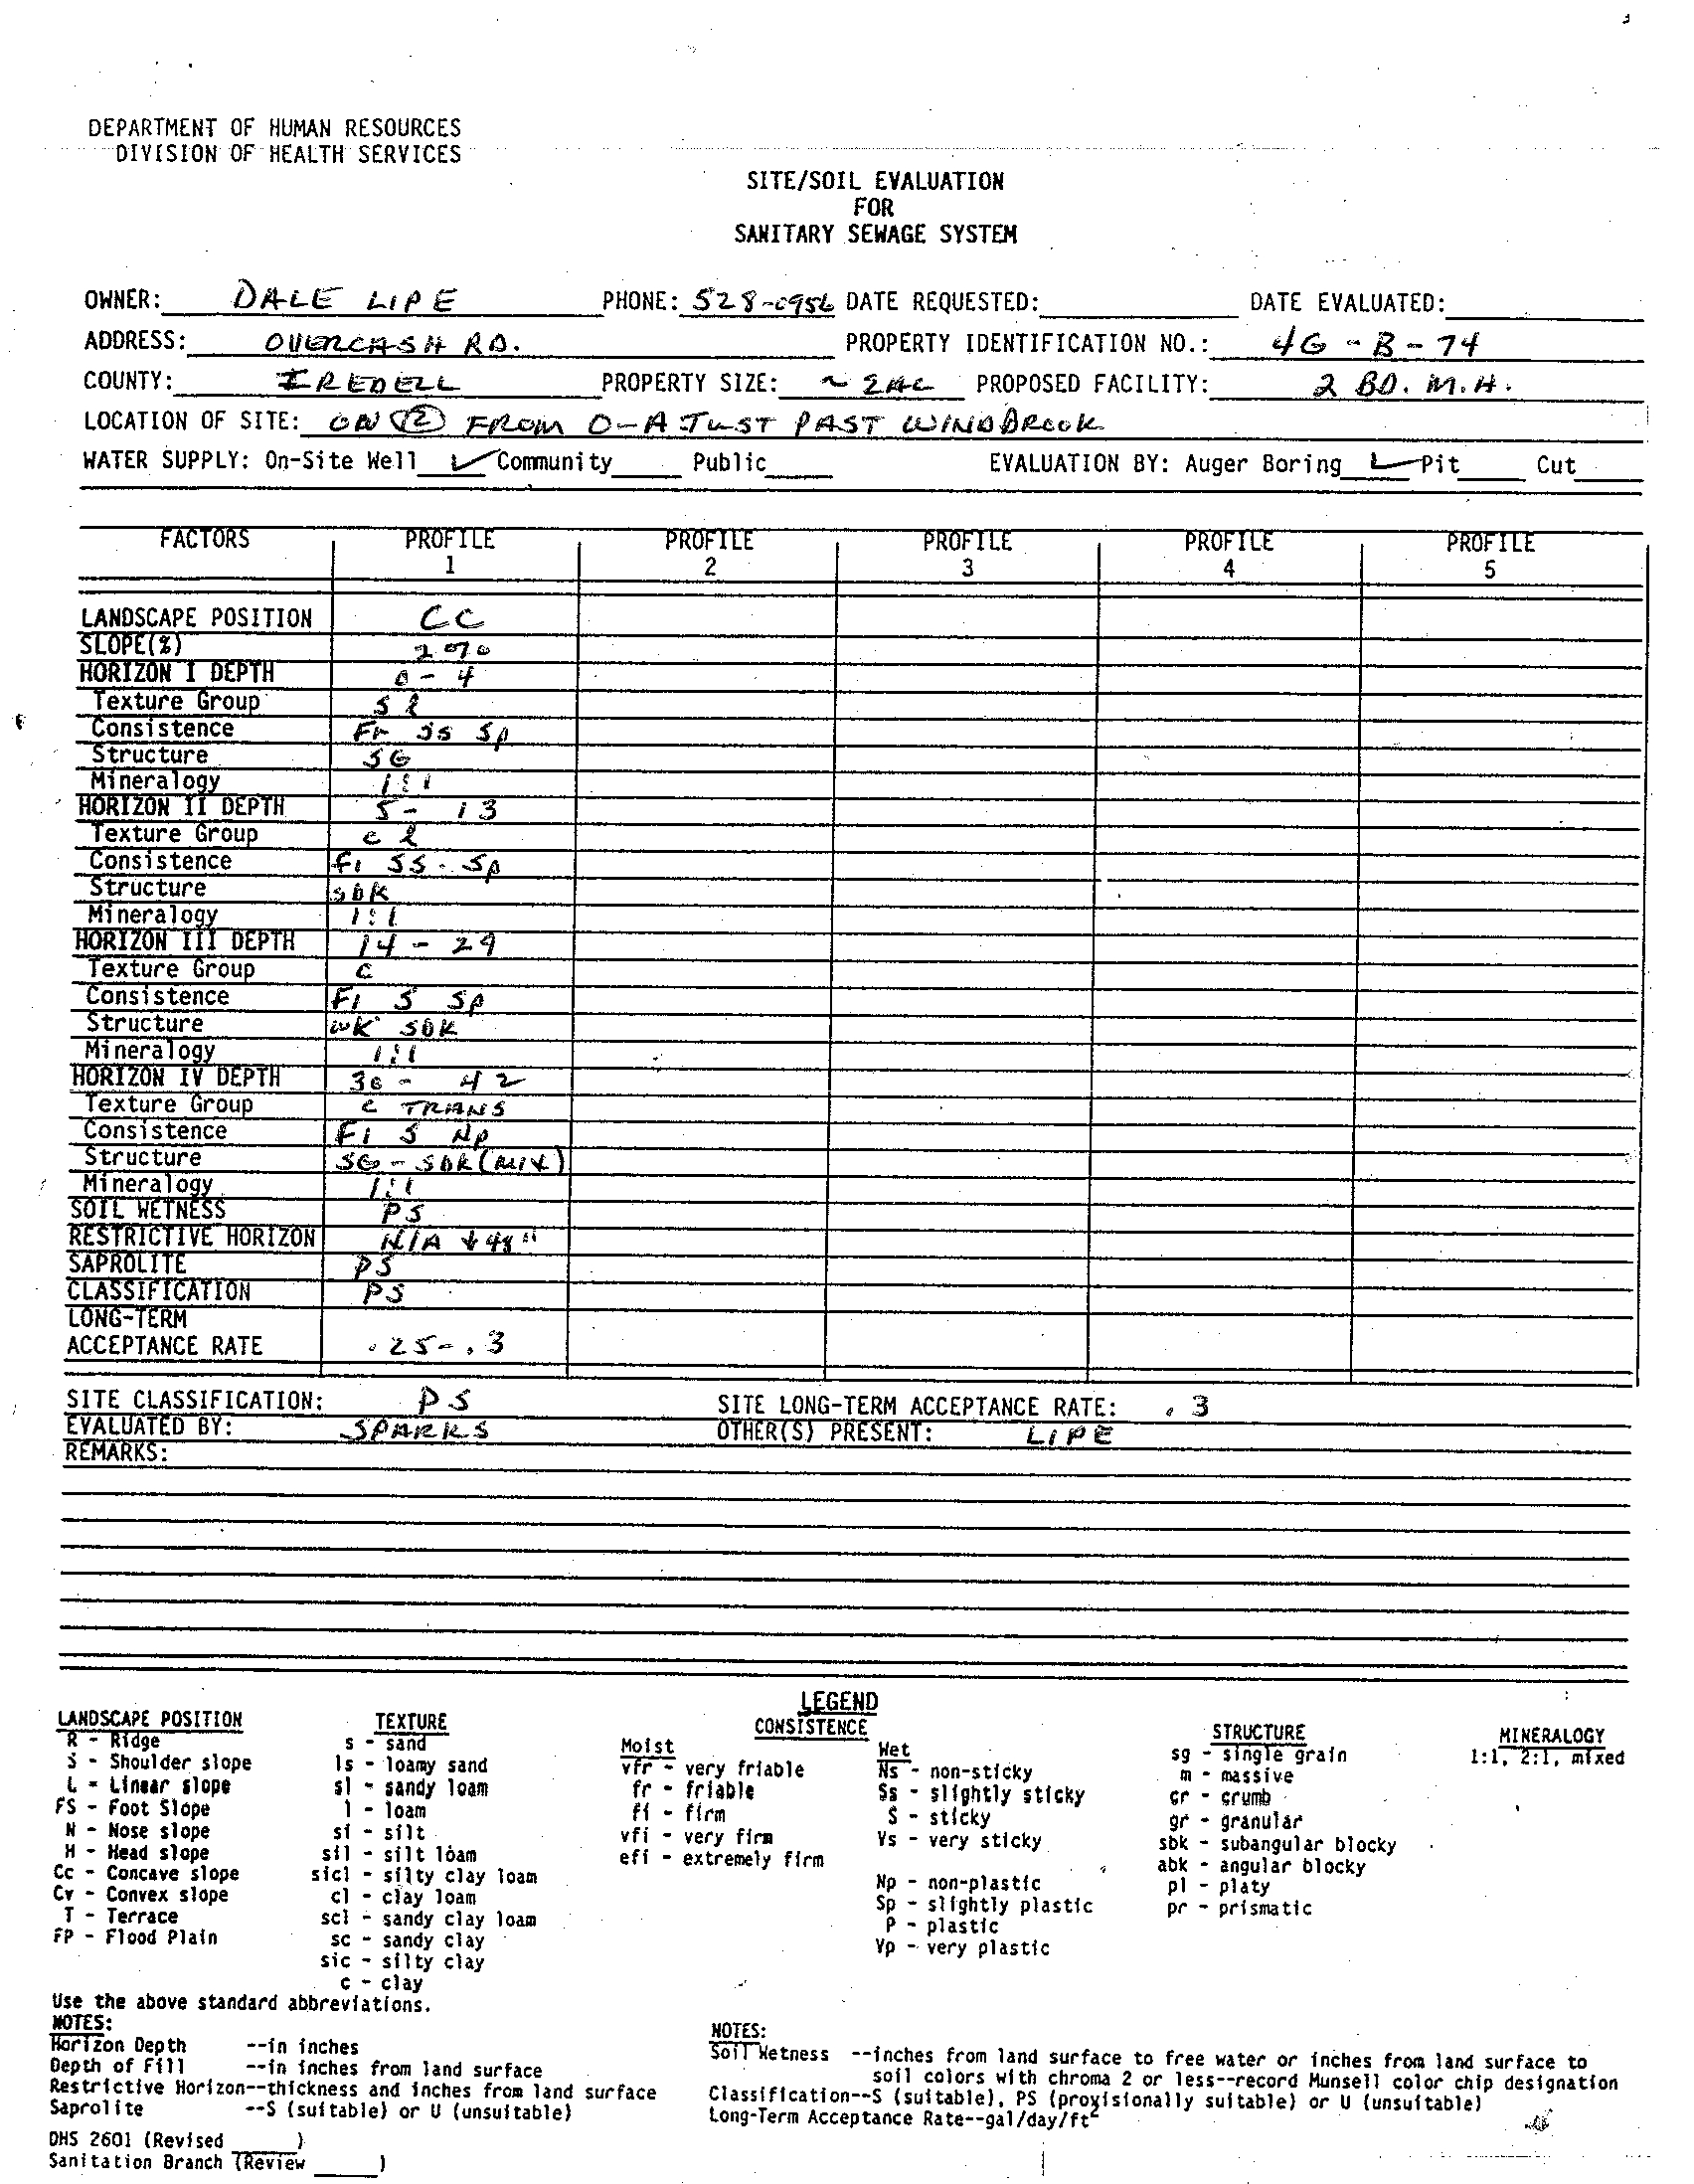 DEPARTMENT OF HUMAN RESOURCES
DIVISION OF HEALTH SERVICES
SITE/SOIL EVALUATION
FOR
SANITARY SEWAGE SYSTEM
OWNER: DALE LIPE PHONE: 528-0956 DATE REQUESTED: DATE EVALUATED:
ADDRESS: OVERCASH RD. PROPERTY IDENTIFICATION NO.: 4G - B - 74
COUNTY: IREDELL PROPERTY SIZE: ~ 2AC PROPOSED FACILITY: 2 BD. M.H.
LOCATION OF SITE: ON FROM O-A JUST PAST WINDBROOK
WATER SUPPLY: On-Site Well ✓ Community Public EVALUATION BY: Auger Boring ✓ Pit Cut
FACTORS PROFILE 1 PROFILE 2 PROFILE 3 PROFILE 4 PROFILE 5
LANDSCAPE POSITION CC
SLOPE(%) 2%
HORIZON I DEPTH 0 - 4
Texture Group sl
Consistence Fr SS Sp
Structure SG
Mineralogy 1:1
HORIZON II DEPTH 5 - 13
Texture Group cl
Consistence Fi SS - Sp
Structure sbk
Mineralogy 1:1
HORIZON III DEPTH 14 - 29
Texture Group c
Consistence Fi S Sp
Structure wk sbk
Mineralogy 1:1
HORIZON IV DEPTH 30 - 42
Texture Group c TRANS
Consistence Fi S Np
Structure SG - SbK (MIX)
Mineralogy 1:1
SOIL WETNESS PS
RESTRICTIVE HORIZON N/A ↓ 48"
SAPROLITE PS
CLASSIFICATION PS
LONG-TERM
ACCEPTANCE RATE .25-.3
SITE CLASSIFICATION: PS SITE LONG-TERM ACCEPTANCE RATE: .3
EVALUATED BY: SPARKS OTHER(S) PRESENT: LIPE
REMARKS:
LEGEND
LANDSCAPE POSITION
R - Ridge
S - Shoulder slope
L - Linear slope
FS - Foot Slope
N - Nose slope
H - Head slope
Cc - Concave slope
Cv - Convex slope
T - Terrace
FP - Flood Plain
TEXTURE
s - sand
ls - loamy sand
sl - sandy loam
l - loam
si - silt
sil - silt loam
sicl - silty clay loam
cl - clay loam
scl - sandy clay loam
sc - sandy clay
sic - silty clay
c - clay
CONSISTENCE
Moist
vfr - very friable
fr - friable
fi - firm
vfi - very firm
efi - extremely firm
Wet
Ns - non-sticky
Ss - slightly sticky
S - sticky
Vs - very sticky
Np - non-plastic
Sp - slightly plastic
P - plastic
Vp - very plastic
STRUCTURE
sg - single grain
m - massive
cr - crumb
gr - granular
sbk - subangular blocky
abk - angular blocky
pl - platy
pr - prismatic
MINERALOGY
1:1, 2:1, mixed
Use the above standard abbreviations.
NOTES:
Horizon Depth --in inches
Depth of Fill --in inches from land surface
Restrictive Horizon--thickness and inches from land surface
Saprolite --S (suitable) or U (unsuitable)
NOTES:
Soil Wetness --inches from land surface to free water or inches from land surface to
soil colors with chroma 2 or less--record Munsell color chip designation
Classification--S (suitable), PS (provisionally suitable) or U (unsuitable)
Long-Term Acceptance Rate--gal/day/ft²
DHS 2601 (Revised )
Sanitation Branch (Review )